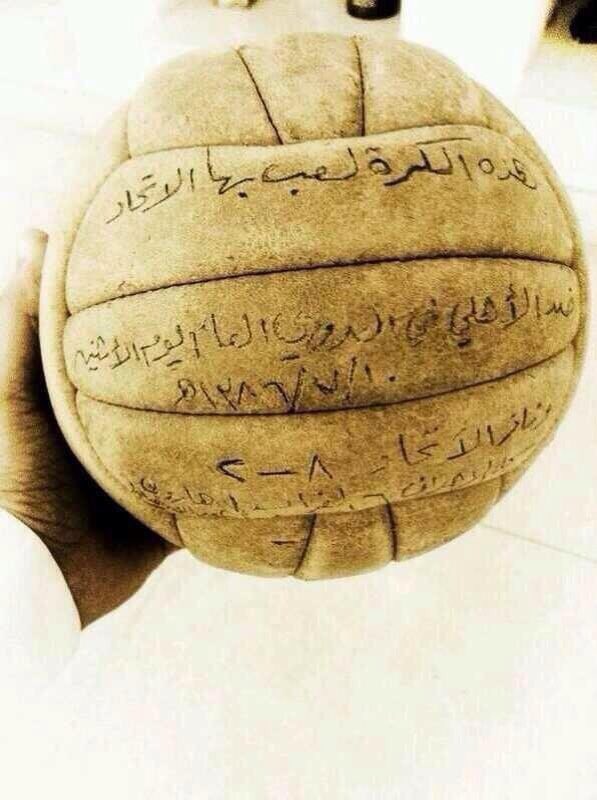 هذه الكرة لعب بها الاتحاد
ضد الأهلي في الدوري العام اليوم الاثنين
١٣٨٦/٧/١٠ هـ
وفاز الاتحاد
٨ – ٢